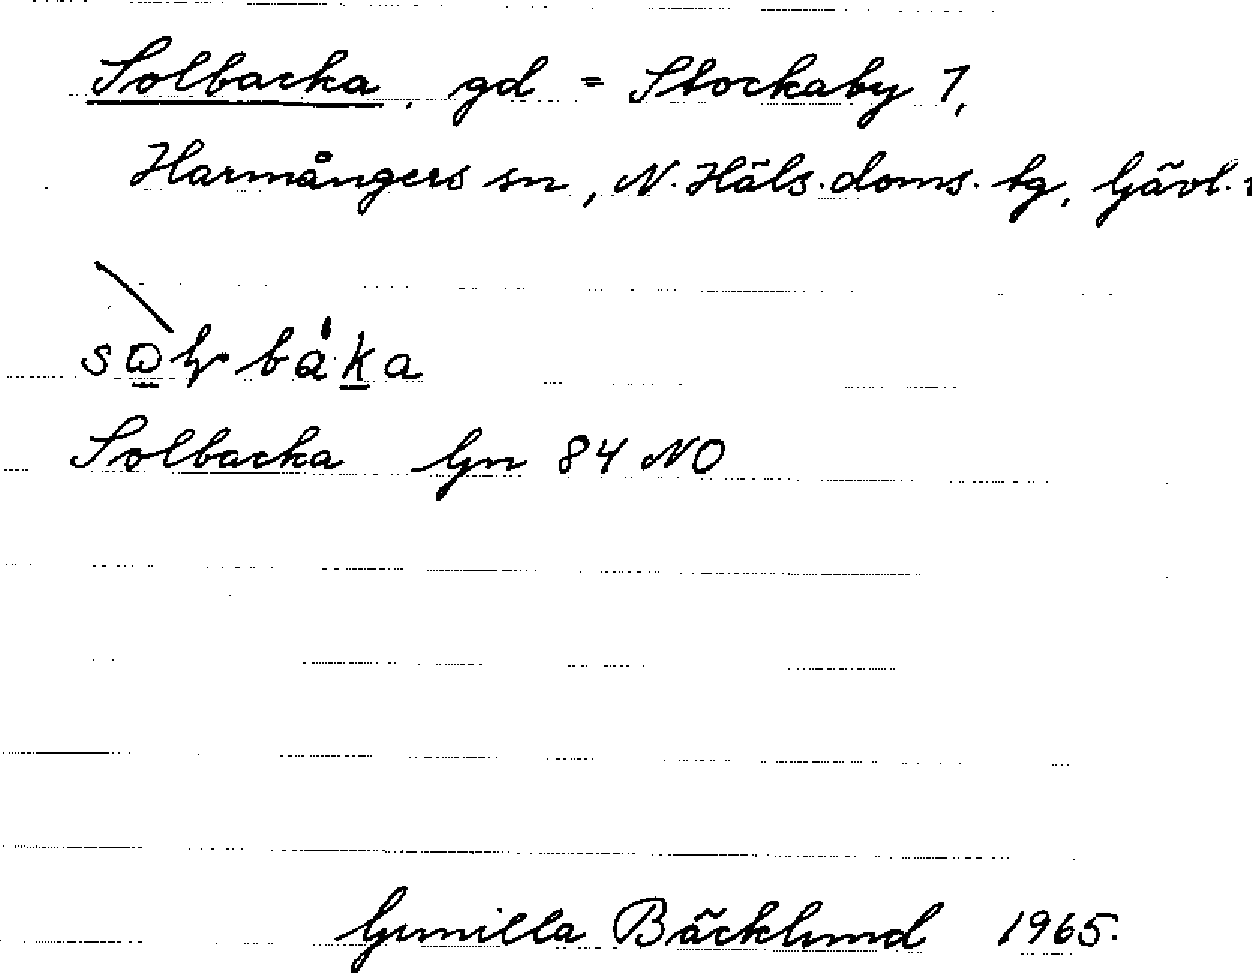 Solbacka, gd = Stockaby 7,
Harmångers sn, N. Häls. doms. tg, Gävl.
Solbacka Gn 84 NO
Gunilla Bäcklund 1965.